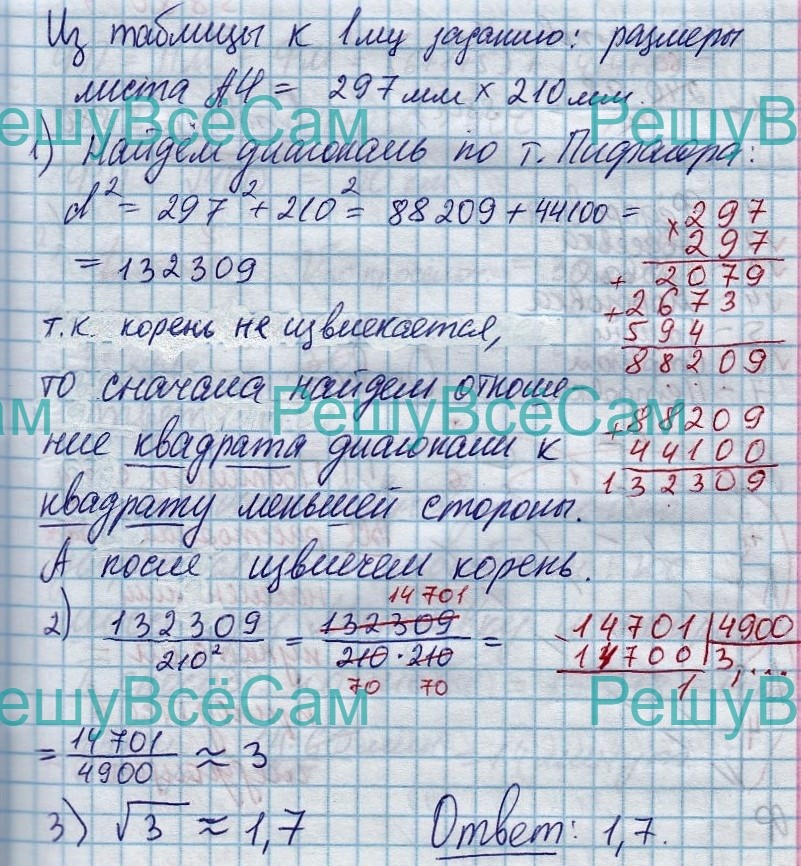 Из таблицы к 1му заданию: размеры
листа А4 = 297мм × 210мм.
РешуВсёСам РешуВ
1) Найдём диагональ по т. Пифагора:
d² = 297² + 210² = 88209 + 44100 =
= 132309
× 297
297
+ 2079
+ 2673
594
88209
т.к. корень не извлекается,
то сначала найдем отноше
ам РешуВсёСам
ние квадрата диагонали к
квадрату меньшей стороны.
А после извлечем корень.
+ 88209
44100
132309
14701
2) 132309 / 210² = 132309 / 210 · 210 =
70 70
- 14701 | 4900
14700 | 3,...
1
РешуВсёСам РешуВ
= 14701 / 4900 ≈ 3
3) √3 ≈ 1,7 Ответ: 1,7.